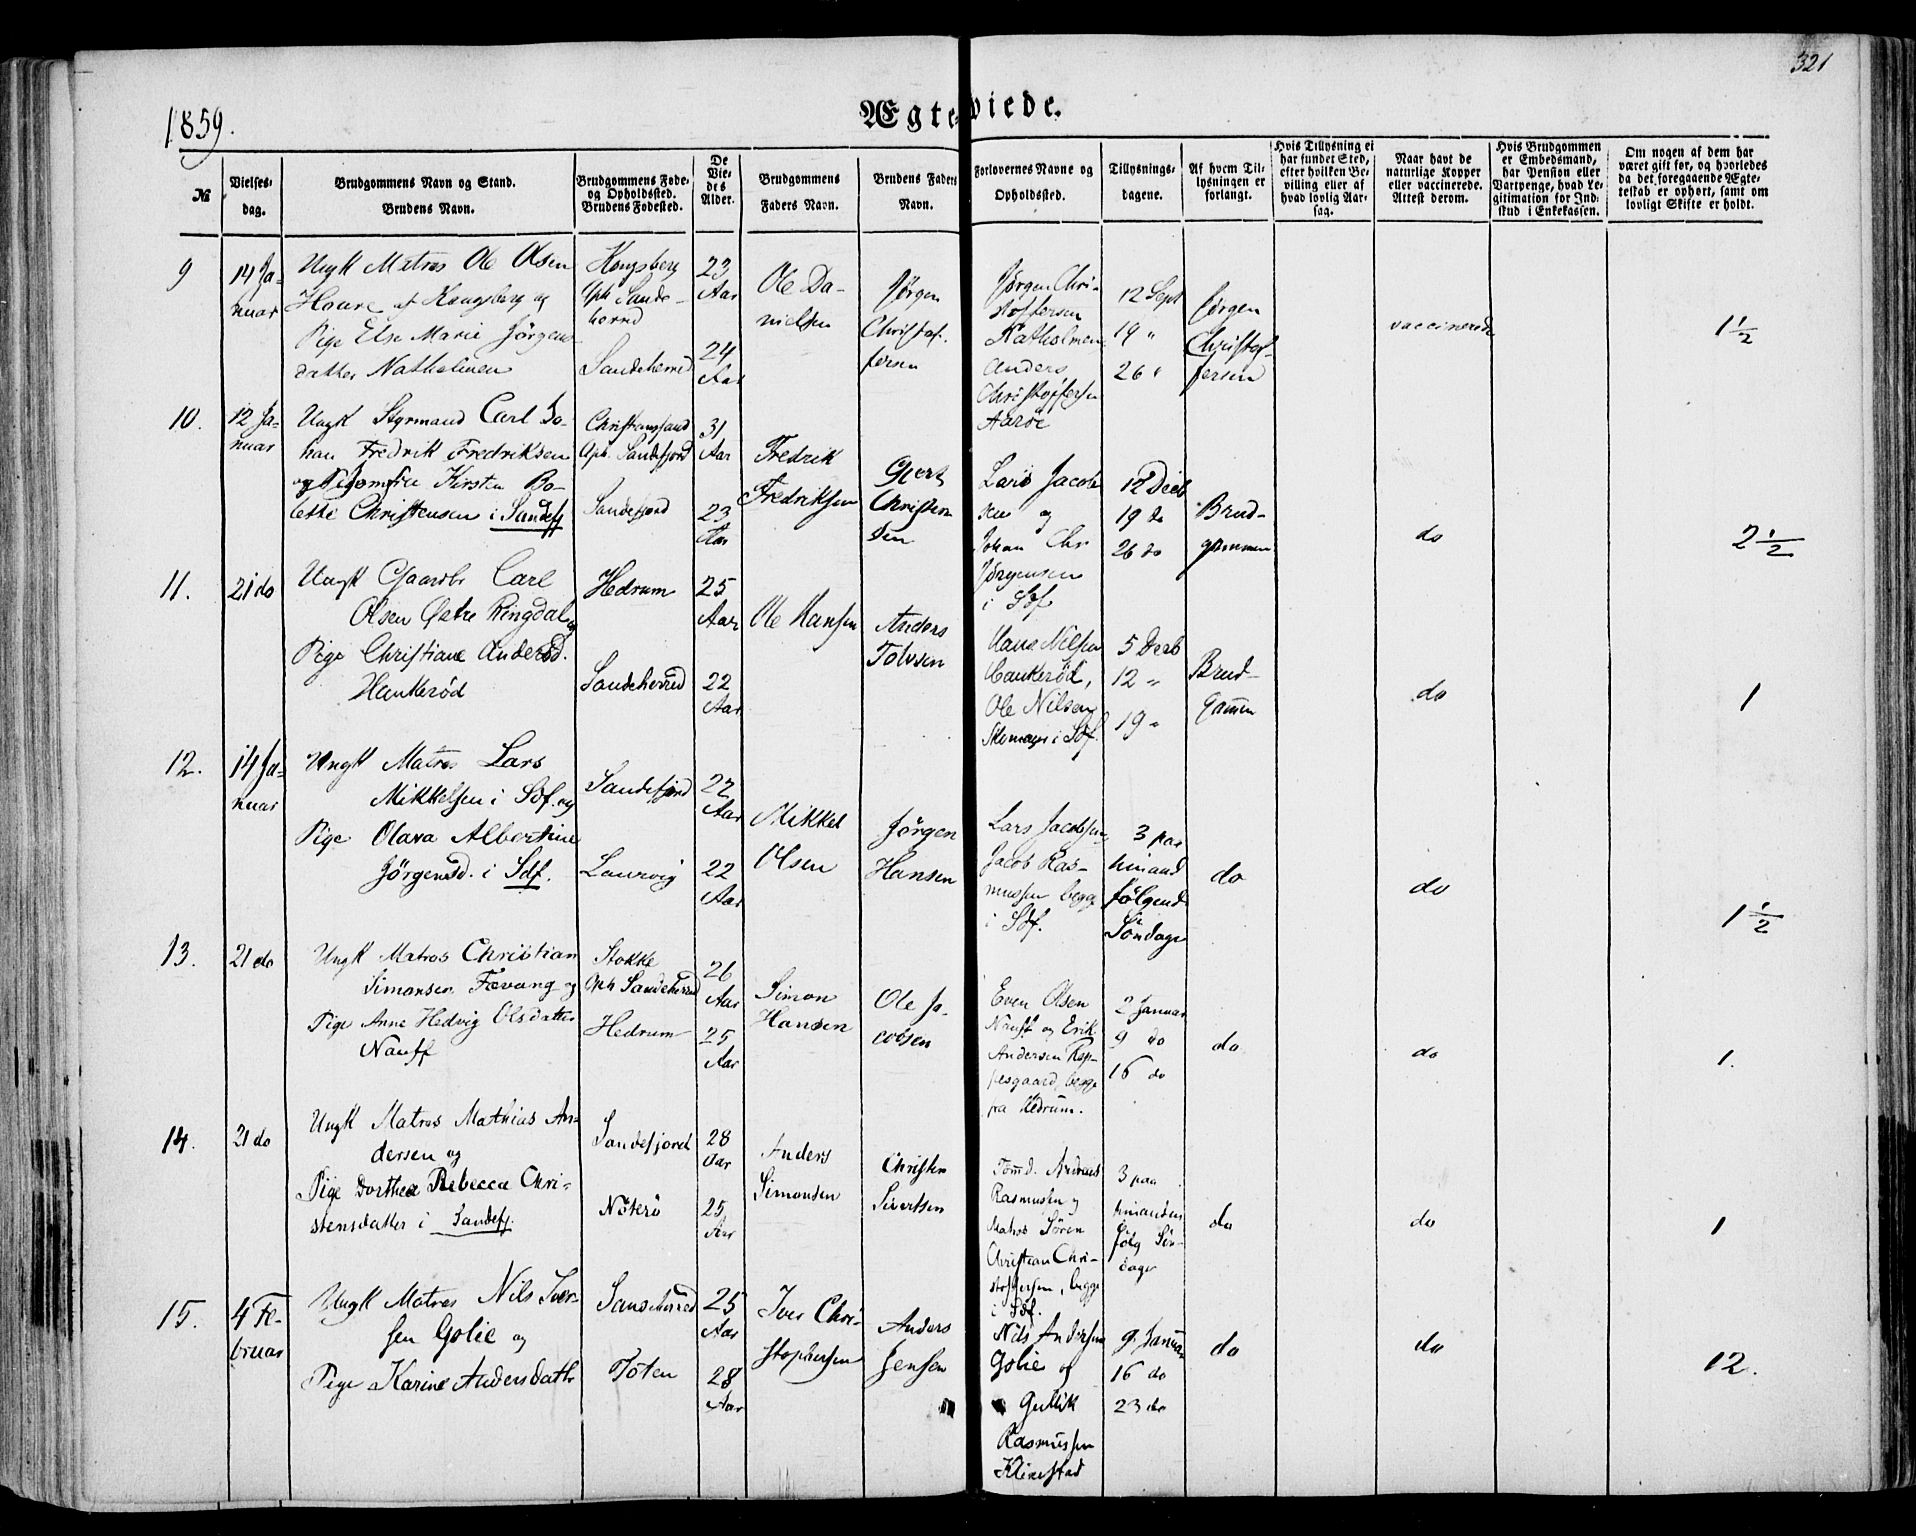 321
1859.
Ægteviede.
№
Vielses-
dag.
Brudgommens Navn og Stand.
Brudens Navn.
Brudgommens Føde-
og Opholdssted.
Brudens Fødested.
De
Vie-
des
Alder.
Brudgommens
Faders Navn.
Brudens Faders
Navn.
Forlovernes Navne og
Opholdssted.
Tillysnings-
dagene.
Af hvem Til-
lysningen er
forlangt.
Hvis Tillysning ei
har fundet Sted,
efter hvilken Be-
villing eller af
hvad lovlig Aar-
sag.
Naar havt de
naturlige Kopper
eller vaccinerede.
Attest derom.
Hvis Brudgommen
er Embedsmand,
har Pension eller
Vartpenge, hvad Le-
gitimation for Ind-
skud i Enkekassen.
Om nogen af dem har
været gift før, og hvorledes
da det foregaaende Ægte-
teskab er ophørt, samt om
lovligt Skifte er holdt.
9
14 Ja-
nuar
Ungk Matros Ole Olsen
Haare af Kongsberg og
Pige Else Marie Jørgens-
datter Natholmen
Kongsberg
Oph Sande-
herred
Sandeherred
23
Aar
24
Aar
Ole Da-
nielsen
Jørgen
Christof-
fersen
Jørgen Chri-
stoffersen
Natholmen
Anders
Christoffersen
Aarøe
12 Sept
19 "
26 "
Jørgen
Christof-
fersen
vaccinerede
1 1/2
10.
12 Ja-
nuar
Ungk Styrmand Carl Jo-
han Fredrik Fredriksen
og Jomfru Kirsten Bo-
lette Christensen i Sandefj
Christianssand
Oph. Sandefjord
Sandefjord
31
Aar
23
Aar
Fredrik
Fredriksen
Gjert
Christen
sen
Lars Jacob
sen og
Johan Chr
Jørgensen
i Sdf
12 Decb
19 do
26 do
Brud-
gommen
do
2 1/2
11.
21 do
Ungk Gaardbr Carl
Olsen Østre Ringdal og
Pige Christiane Andersd.
Haukerød
Hedrum
Sandeherred
25
Aar
22
Aar
Ole Hansen
Anders
Tolvsen
Hans Nilsen
Haukerød,
Ole Nilsen
Skomager i Sdf.
5 Decb
12 "
19 "
Brud-
gommen
do
1
12.
14 Ja-
nuar
Ungk Matros Lars
Mikkelsen i Sdf. og
Pige Olava Albertine
Jørgensd. i Sdf.
Sandefjord
Laurvig
22
Aar
22
Aar
Mikkel
Olsen
Jørgen
Hansen
Lars Jacobsen,
Jacob Ras-
mussen begge
i Sdf.
3 paa
hinand
følgend
Søndage
do
do
1 1/2
13.
21 do
Ungk Matros Christian
Simonsen Fevang og
Pige Anne Hedvig Olsdatter
Nauff
Stokke
Oph Sandeherred
Hedrum
26
Aar
25
Aar
Simon
Hansen
Ole Ja-
cobsen
Even Olsen
Nauff og Erik
Andersen Rop-
pesgaard, begge
fra Hedrum.
2 Januar
9 do
16 do
do
do
1.
14.
21 do
Ungk Matros Mathias An-
dersen og
Pige Dorthea Rebecca Chri-
stensdatter i Sandefj.
Sandefjord
Nøterø
28
Aar
25
Aar
Anders
Simonsen
Christen
Sivertsen
Tømd. Andreas
Rasmussen og
Matros Søren
Christian Chri-
stophersen, begge
i Sdf.
3 paa
hinanden
følg Søn-
dage
do
do
1
15.
4 Fe-
bruar
Ungk Matros Nils Iver-
sen Golie og
Pige Karine Andersdatter
Sandeherred
Toten
25
Aar
28
Aar
Iver Chri-
stophersen
Anders
Jensen
Nils Andersen
Golie og
Gullik
Rasmussen
Klinestad
9. Januar
16 do
23 do
do
do
12.